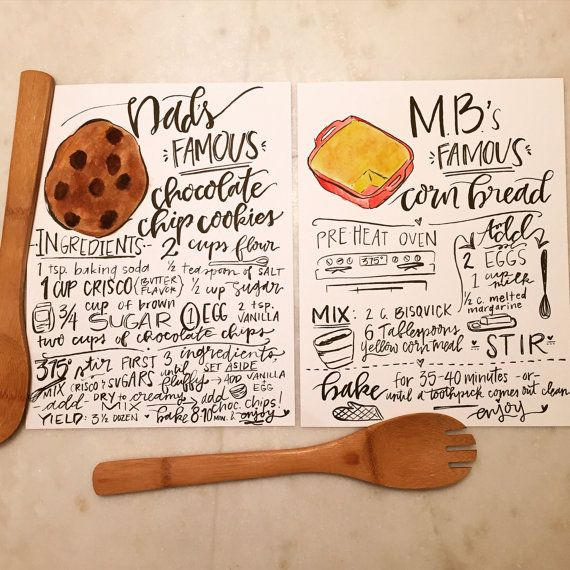 Dad's
FAMOUS
chocolate
chip cookies
INGREDIENTS
2 cups flour
1 tsp. baking soda ½ teaspoon of SALT
1 CUP CRISCO (BUTTER FLAVOR) ½ cup Sugar
3/4 cup of brown
SUGAR 1 EGG 2 tsp. VANILLA
two cups of chocolate chips
375° stir FIRST 3 ingredients SET ASIDE
MIX CRISCO & SUGARS until fluffy → ADD VANILLA EGG
add DRY to creamy MIX add choc. chips!
YIELD: 3 ½ DOZEN ♥ bake 8-10 MIN. & enjoy
M.B.'s
FAMOUS
corn bread
PRE-HEAT OVEN
375°
MIX: 2 C. BISQUICK
6 Tablespoons
yellow corn meal
Add
2 EGGS
1 cup milk
½ c. melted
margarine
STIR
bake for 35-40 minutes -or-
until a toothpick comes out clean
enjoy